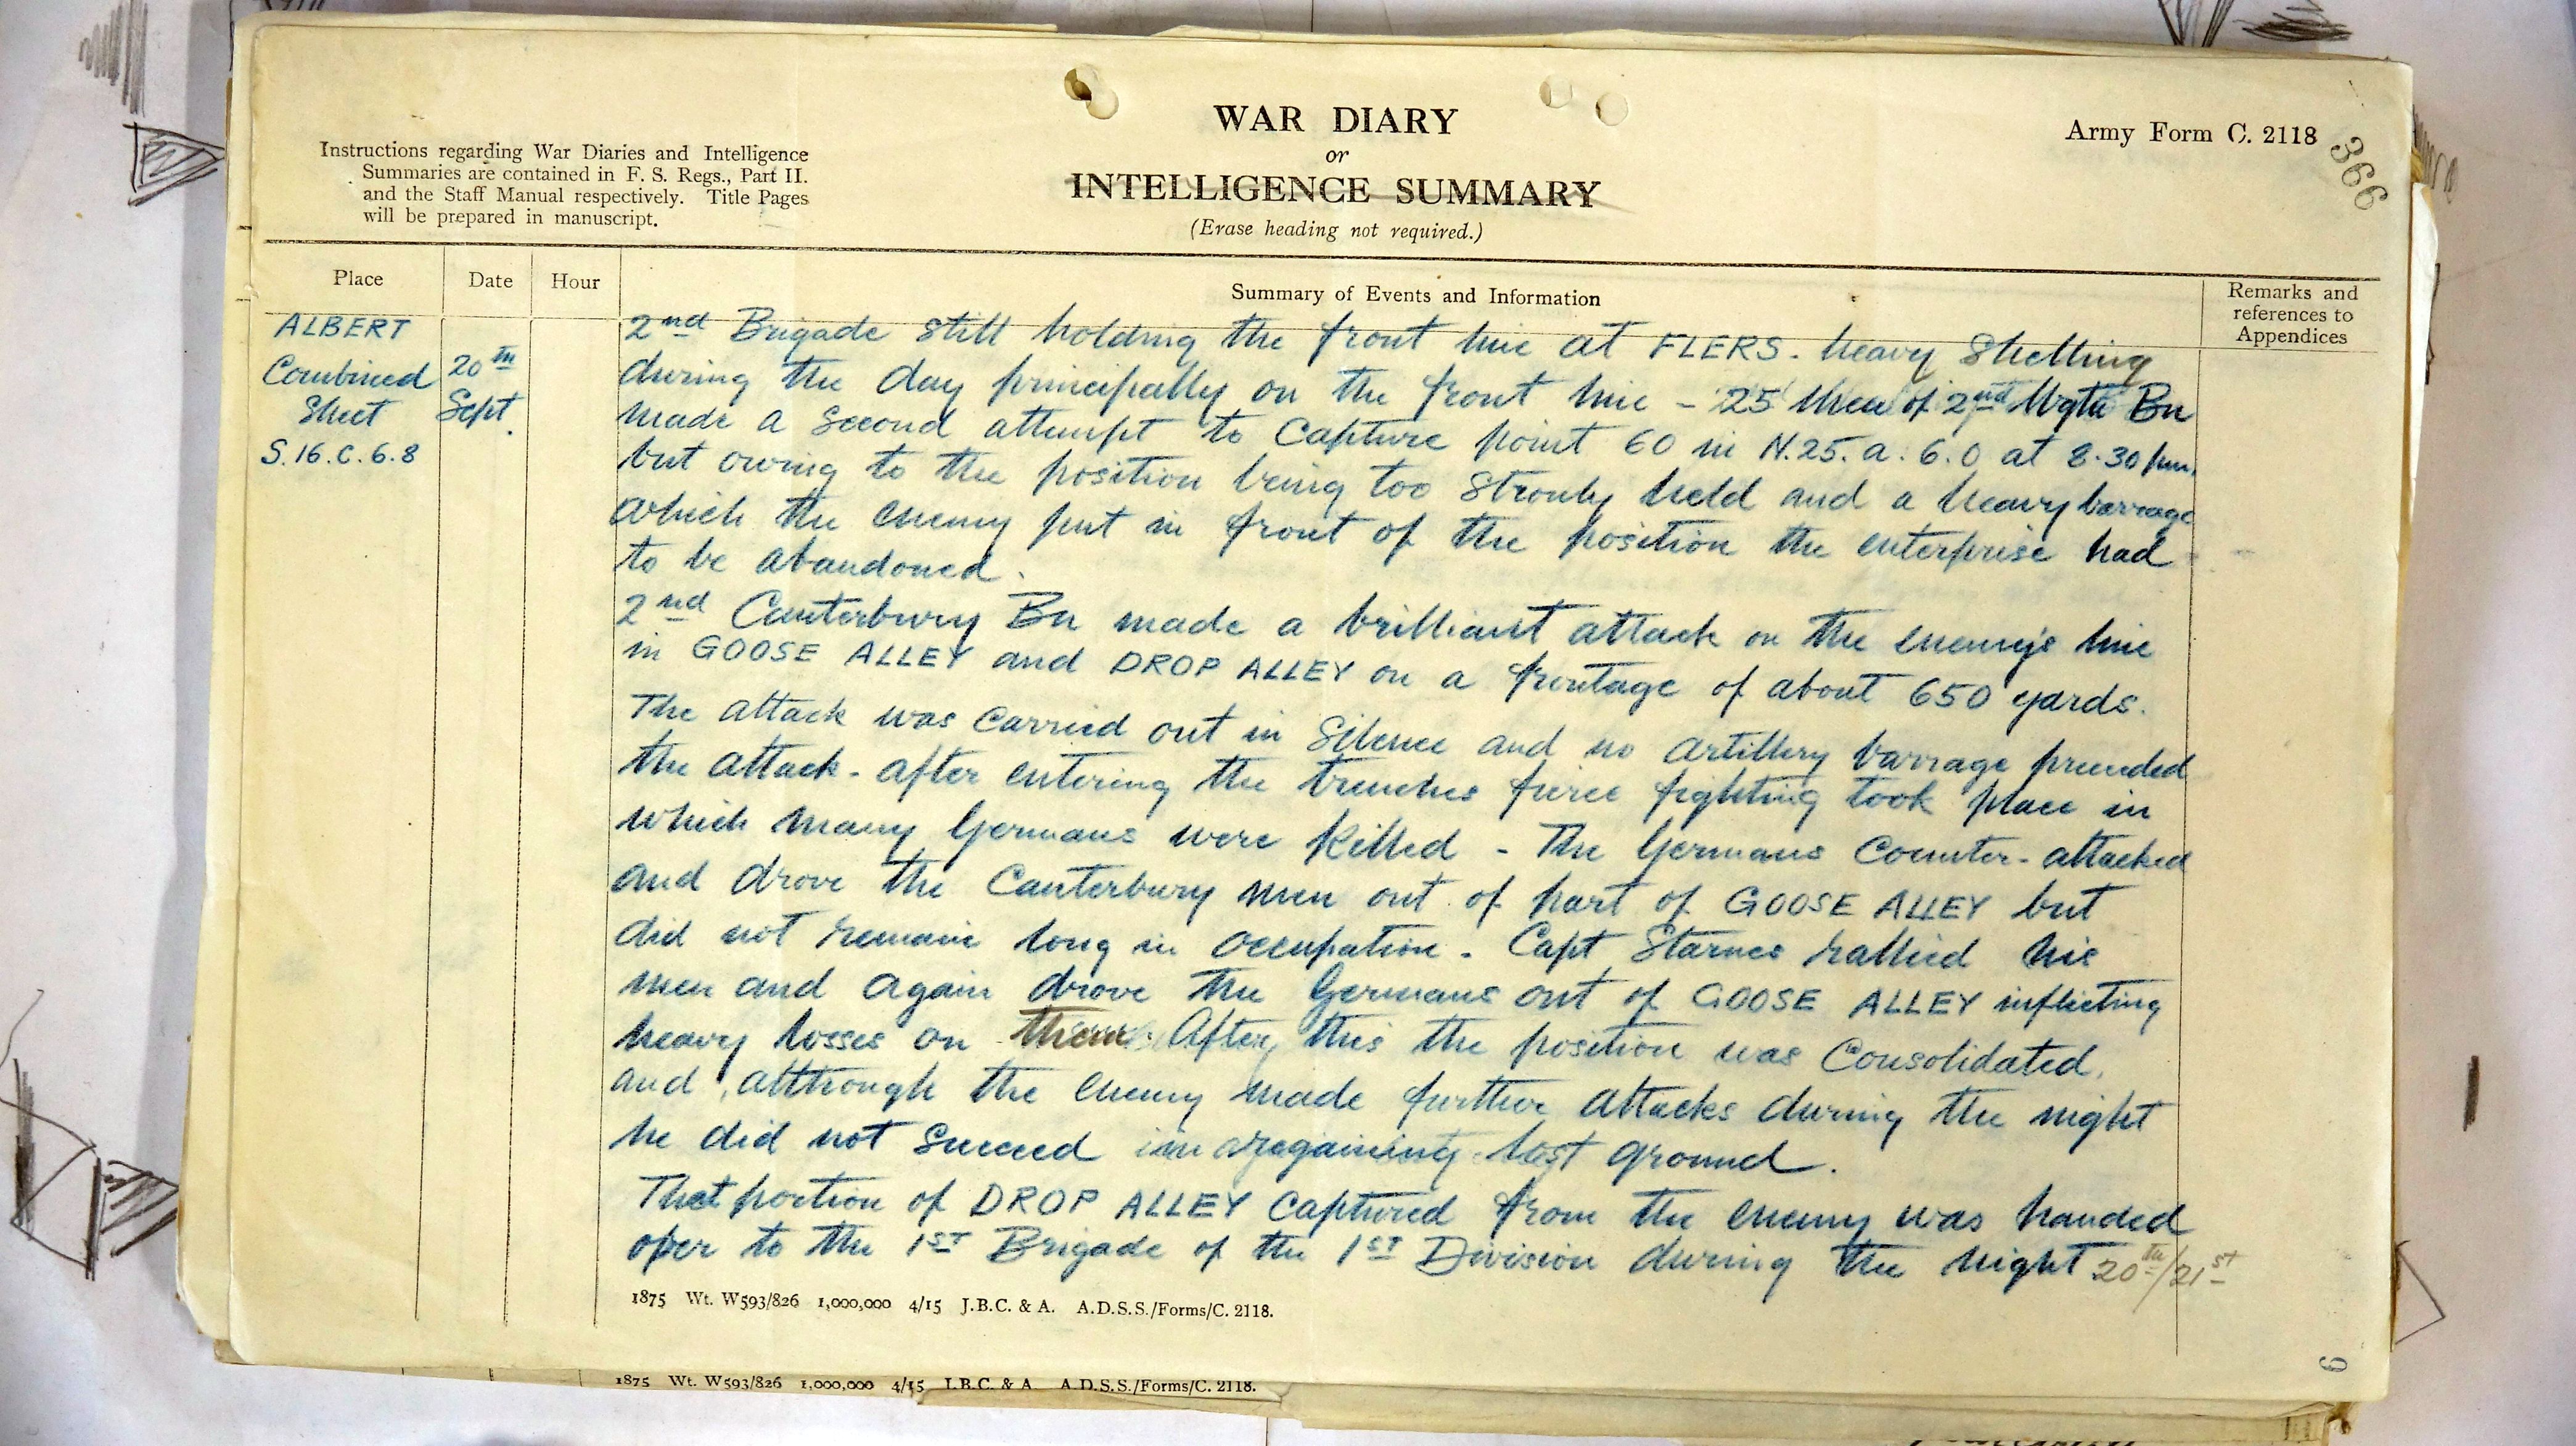 WAR DIARY
or
INTELLIGENCE SUMMARY
(Erase heading not required.)
Army Form C. 2118
366
Instructions regarding War Diaries and Intelligence
Summaries are contained in F. S. Regs., Part II.
and the Staff Manual respectively. Title Pages
will be prepared in manuscript.
Place
Date
Hour
Summary of Events and Information
Remarks and
references to
Appendices
ALBERT
Combined
Sheet
S.16.c.6.8
20th
Sept.
2nd Brigade still holding the front line at FLERS - heavy shelling
during the day principally on the front line - 25 men of 2nd Wgtn Bn
made a second attempt to capture point 60 in N.25.a.6.0 at 8.30 pm.
but owing to the position being too stronly held and a heavy barrage
which the enemy put in front of the position the enterprise had
to be abandoned.
2nd Canterbury Bn made a brilliant attack on the enemy's line
in GOOSE ALLEY and DROP ALLEY on a frontage of about 650 yards.
The attack was carried out in silence and no artillery barrage preceeded
the attack - after entering the trenches fierce fighting took place in
which many Germans were killed - The Germans counter-attacked
and drove the Canterbury men out of part of GOOSE ALLEY but
did not remain long in occupation - Capt Starnes rallied his
men and again drove the Germans out of GOOSE ALLEY inflicting
heavy losses on them. After this the position was consolidated.
and, although the enemy made further attacks during the night
he did not succeed in regaining lost ground.
That portion of DROP ALLEY captured from the enemy was handed
over to the 1ST Brigade of the 1ST Division during the night 20th/21st
1875 Wt. W593/826 1,000,000 4/15 J.B.C. & A. A.D.S.S./Forms/C. 2118.
9
1875 Wt. W593/826 1,000,000 4/15 J.B.C. & A. A.D.S.S./Forms/C. 2118.